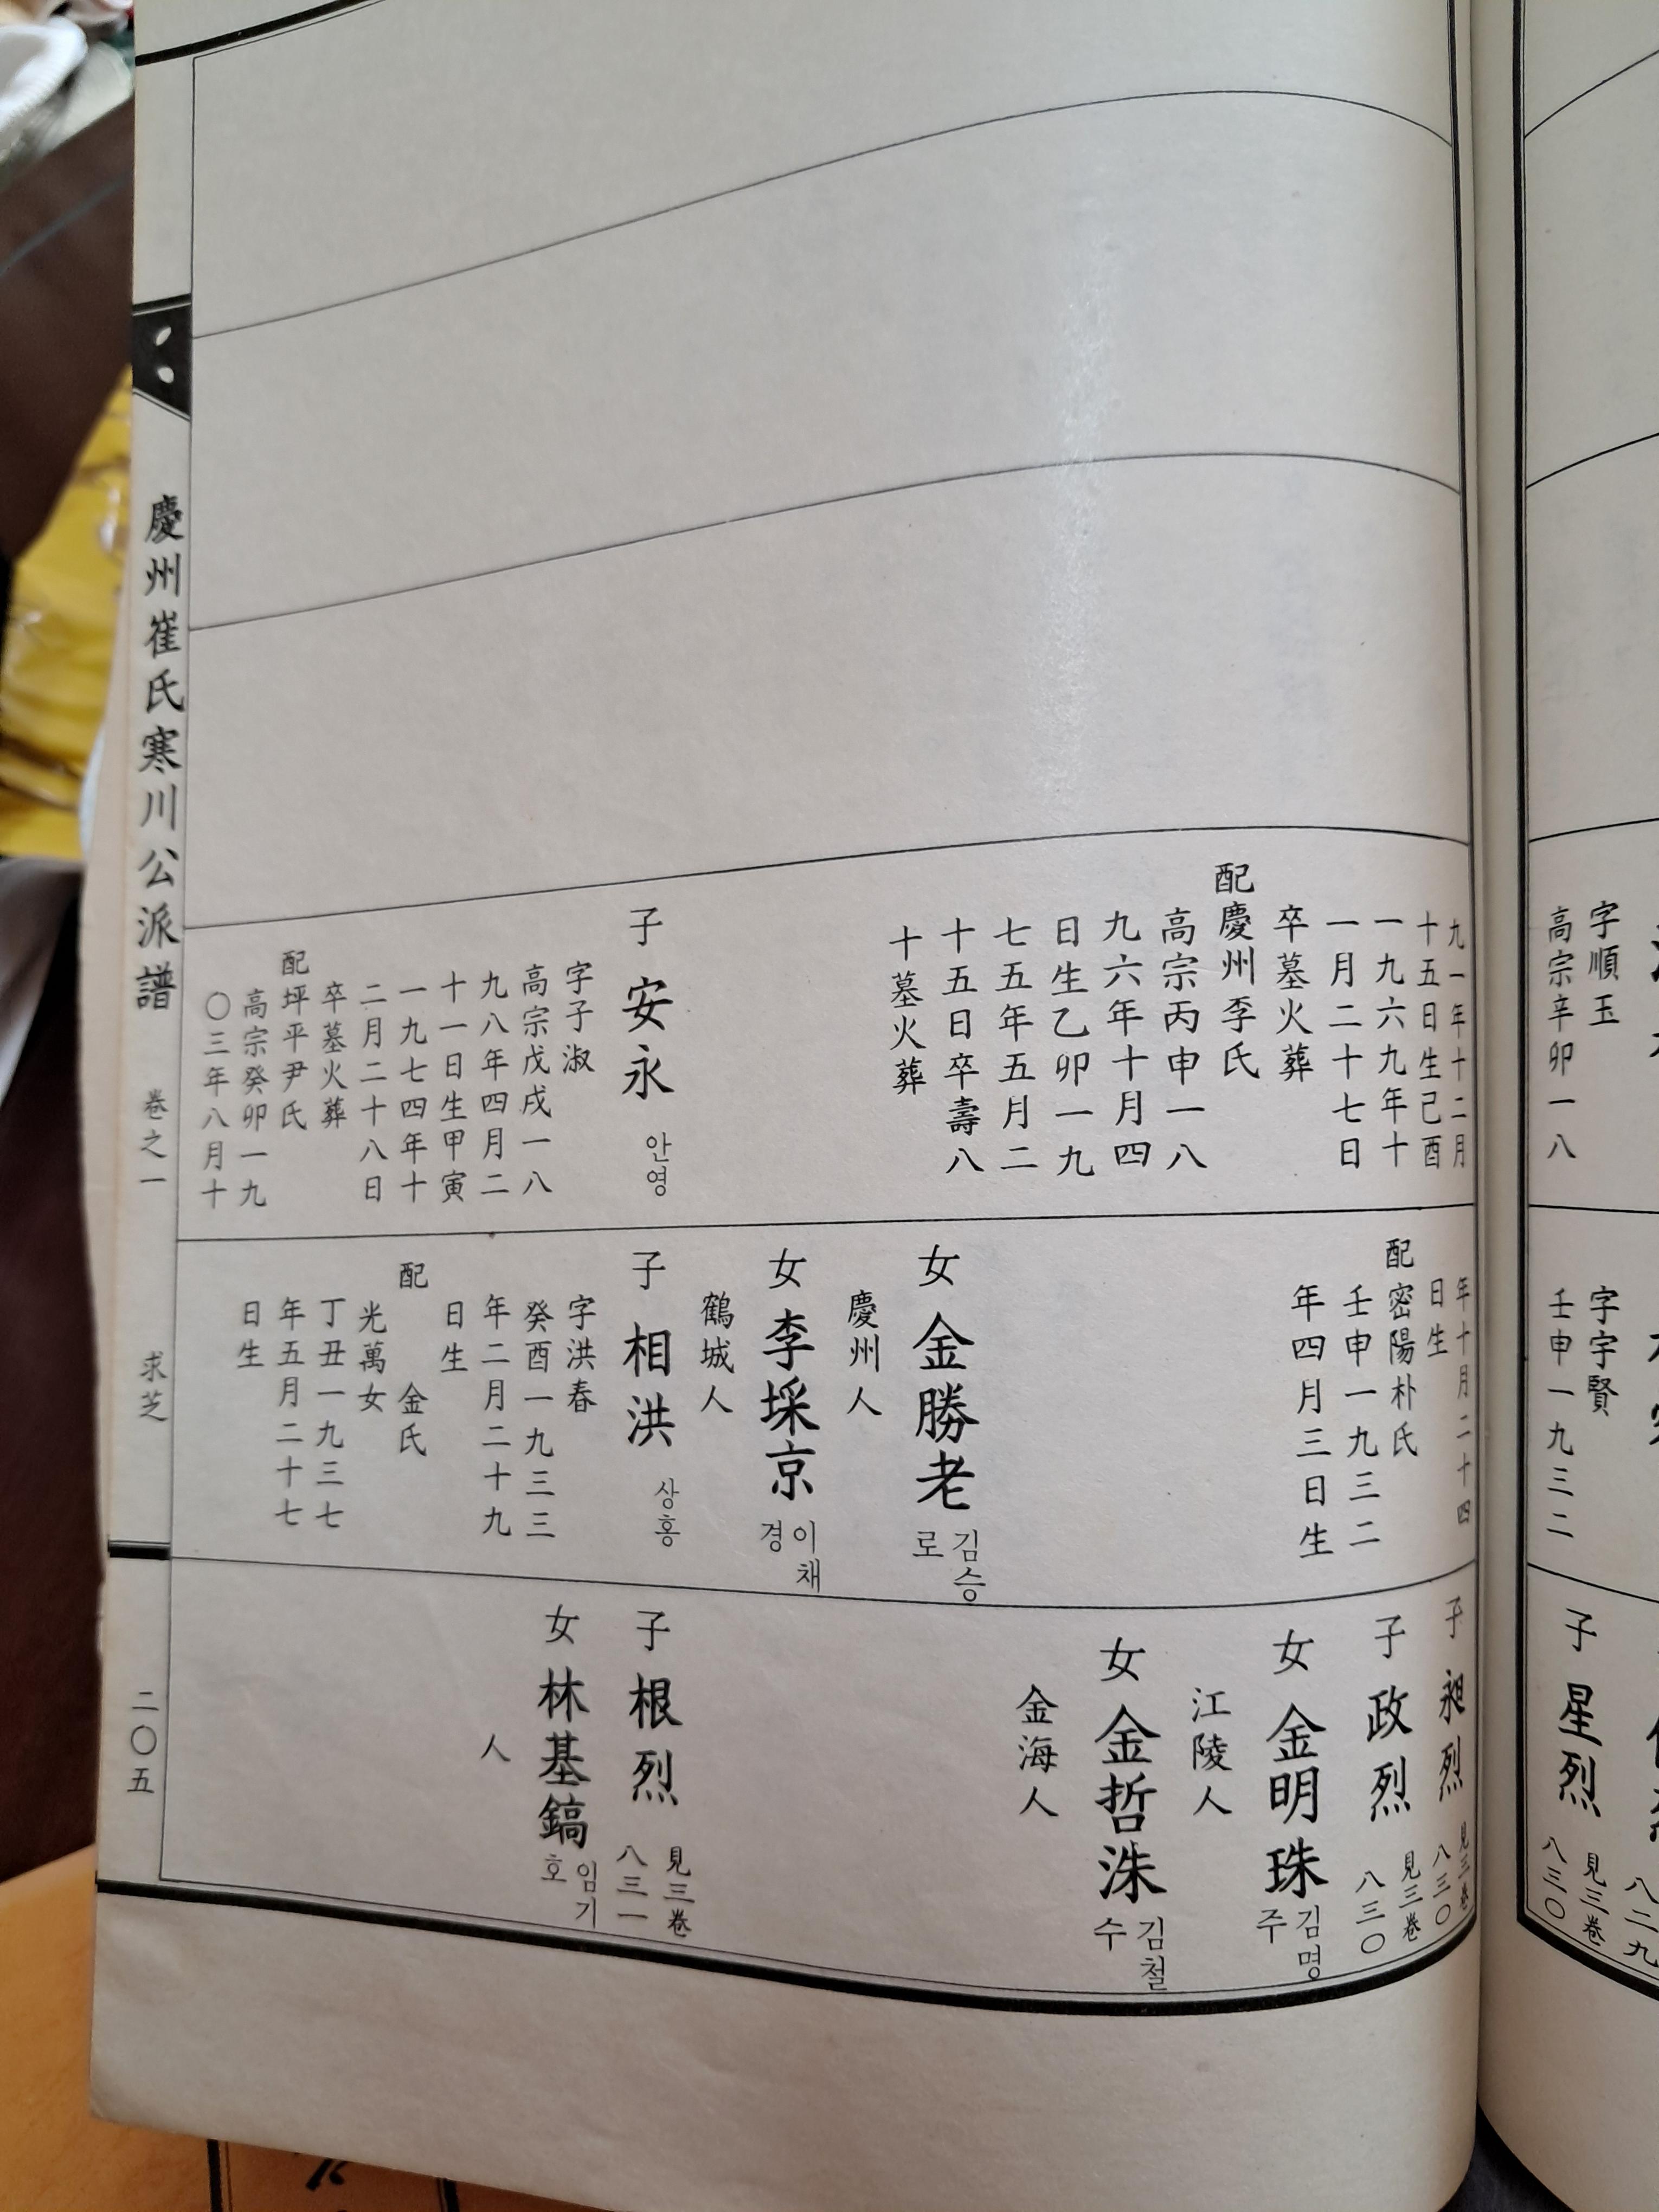 字順玉
高宗辛卯一八
字宇賢
壬申一九三二
子 星烈
見三卷
八三〇
八二九
九一年十二月
十五日生己酉
一九六九年十
一月二十七日
卒墓火葬
配慶州李氏
高宗丙申一八
九六年十月四
日生乙卯一九
七五年五月二
十五日卒壽八
十墓火葬
子 安永 안영
字子淑
高宗戊戌一八
九八年四月二
十一日生甲寅
一九七四年十
二月二十八日
卒墓火葬
配坪平尹氏
高宗癸卯一九
〇三年八月十
年十月二十四
日生
配密陽朴氏
壬申一九三二
年四月三日生
女 金勝老 김승로
慶州人
女 李埰京 이채경
鶴城人
子 相洪 상홍
字洪春
癸酉一九三三
年二月二十九
日生
配 金氏
光萬女
丁丑一九三七
年五月二十七
日生
子 昶烈 見三卷
八三〇
子 政烈 見三卷
八三〇
女 金明珠 김명주
江陵人
女 金哲洙 김철수
金海人
子 根烈 見三卷
八三一
女 林基鎬 임기호
人
慶州崔氏寒川公派譜 卷之一 求芝 二〇五